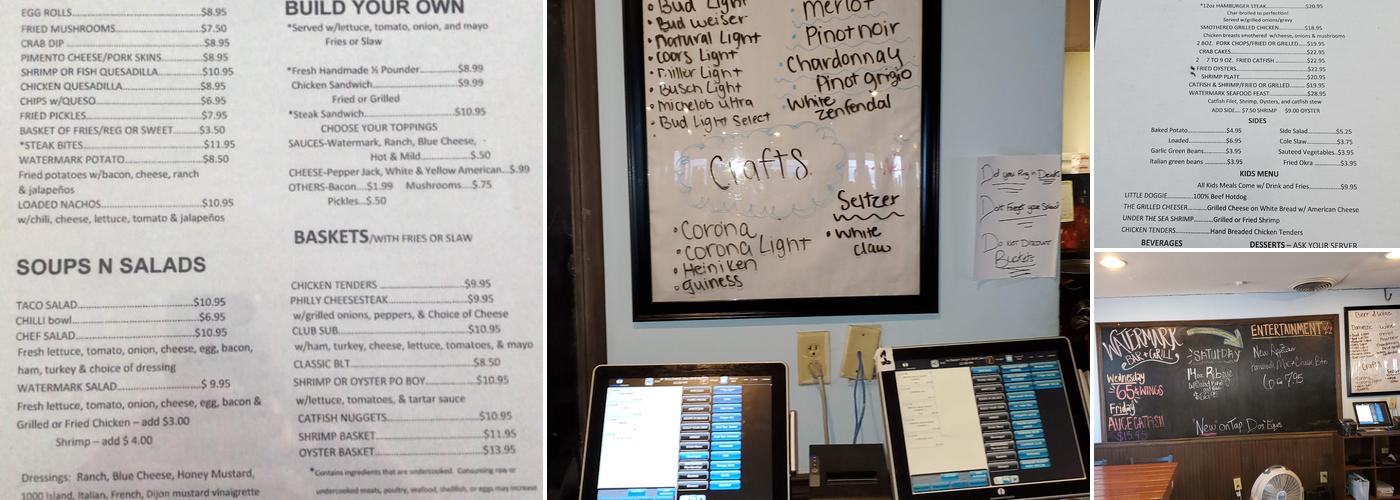 EGG ROLLS $8.95
FRIED MUSHROOMS $7.50
CRAB DIP $8.95
PIMENTO CHEESE/PORK SKINS $8.95
SHRIMP OR FISH QUESADILLA $10.95
CHICKEN QUESADILLA $8.95
CHIPS w/QUESO $6.95
FRIED PICKLES $7.95
BASKET OF FRIES/REG OR SWEET $3.50
*STEAK BITES $11.95
WATERMARK POTATO $8.50
Fried potatoes w/bacon, cheese, ranch
& jalapeños
LOADED NACHOS $10.95
w/chili, cheese, lettuce, tomato & jalapeños
SOUPS N SALADS
TACO SALAD $10.95
CHILLI bowl $6.95
CHEF SALAD $10.95
Fresh lettuce, tomato, onion, cheese, egg, bacon,
ham, turkey & choice of dressing
WATERMARK SALAD $ 9.95
Fresh lettuce, tomato, onion, cheese, egg, bacon &
Grilled or Fried Chicken – add $3.00
Shrimp – add $ 4.00
Dressings: Ranch, Blue Cheese, Honey Mustard,
1000 Island, Italian, French, Dijon mustard vinaigrette
BUILD YOUR OWN
*Served w/lettuce, tomato, onion, and mayo
Fries or Slaw
*Fresh Handmade ½ Pounder $8.99
Chicken Sandwich $9.99
Fried or Grilled
*Steak Sandwich $10.95
CHOOSE YOUR TOPPINGS
SAUCES-Watermark, Ranch, Blue Cheese,
Hot & Mild $.50
CHEESE-Pepper Jack, White & Yellow American...$.99
OTHERS-Bacon....$1.99 Mushrooms...$.75
Pickles...$.50
BASKETS/WITH FRIES OR SLAW
CHICKEN TENDERS $9.95
PHILLY CHEESESTEAK $9.95
w/grilled onions, peppers, & Choice of Cheese
CLUB SUB $10.95
w/ham, turkey, cheese, lettuce, tomatoes, & mayo
CLASSIC BLT $8.50
SHRIMP OR OYSTER PO BOY $10.95
w/lettuce, tomatoes, & tartar sauce
CATFISH NUGGETS $10.95
SHRIMP BASKET $11.95
OYSTER BASKET $13.95
*Contains ingredients that are undercooked. Consuming raw or
undercooked meats, poultry, seafood, shellfish, or eggs may increase
Bud Light
Bud weiser
Natural Light
Coors Light
Miller Light
Busch Light
Michelob ultra
Bud Light Select
merlot
Pinot noir
Chardonnay
Pinot grigio
White Zenfendal
Crafts
Corona
Corona Light
Heiniken
guiness
Seltzer
White
Claw
Did you Ring in
Dont Forget your
Do NOT Discount
Buckets
*12oz HAMBURGER STEAK $20.95
Char-broiled to perfection!
Served w/grilled onions/gravy
SMOTHERED GRILLED CHICKEN $18.95
Chicken breasts smothered w/cheese, onions & mushrooms
2 8OZ. PORK CHOPS/FRIED OR GRILLED $19.95
CRAB CAKES $22.95
2 7 TO 9 OZ. FRIED CATFISH $22.95
FRIED OYSTERS $22.95
SHRIMP PLATE $20.95
CATFISH & SHRIMP/FRIED OR GRILLED $19.95
WATERMARK SEAFOOD FEAST $28.95
Catfish Filet, Shrimp, Oysters, and catfish stew
ADD SIDE... $7.50 SHRIMP $9.00 OYSTER
SIDES
Baked Potato $4.95
Loaded $6.95
Garlic Green Beans $3.95
Italian green beans $3.95
Side Salad $5.25
Cole Slaw $3.75
Sauteed Vegetables..$3.95
Fried Okra $3.95
KIDS MENU
All Kids Meals Come w/ Drink and Fries $9.95
LITTLE DOGGIE 100% Beef Hotdog
THE GRILLED CHEESER Grilled Cheese on White Bread w/ American Cheese
UNDER THE SEA SHRIMP Grilled or Fried Shrimp
CHICKEN TENDERS Hand Breaded Chicken Tenders
BEVERAGES DESSERTS – ASK YOUR SERVER
WATERMARK
BAR & GRILL
Wednesday
65¢ WINGS
Friday
AUCE CATFISH
$15.95
SATURDAY
ENTERTAINMENT
New on Tap Dos Equis
Beer & Wine
Domestic